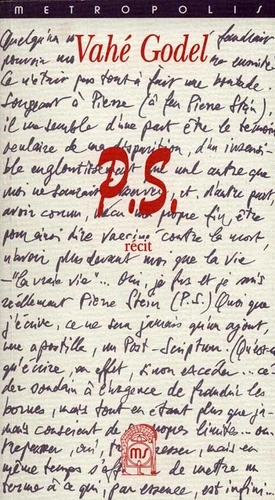 METROPOLIS
Quelqu'un
Vahé Godel
faudrait
pouvoir
ensuite
Ce n'était pas tout à fait une boutade.
Songeant à Pierre (à feu Pierre Stein),
il me semble d'une part être le témoin
oculaire de ma disparition, d'un insensi-
ble engloutissement
nul autre que
moi ne saurait
et, d'autre part,
avoir connu,
ma propre fin, être
P.S.
pour ainsi dire vacciné contre la mort,
n'avoir plus devant moi que la vie
récit
– "la vraie vie"... Oui, je fus et je suis
réellement Pierre Stein (P.S.) Quoi que
j'écrive, ce ne sera jamais qu'un ajout,
une apostille, un Post-Scriptum. (Qu'est-ce
qu'écrire, en effet, sinon excéder... cé-
der soudain à l'urgence de franchir les
bornes, mais tout en étant plus que ja-
mais conscient de
propres limites... ou-
trepasser, oui,
passer, mais en
même temps s'
de mettre un
terme à ce qui, par essence, est infini.
MS